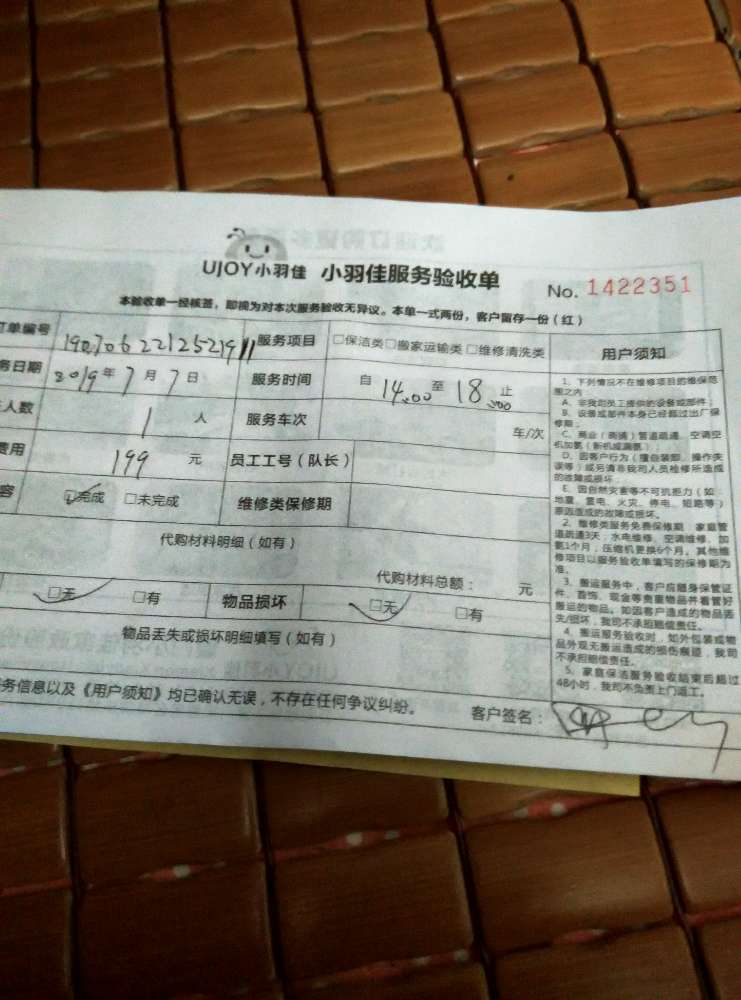 UJOY小羽佳 小羽佳服务验收单 No. 1422351
本验收单一经核签，即视为对本次服务验收无异议。本单一式两份，客户留存一份（红）
订单编号 服务项目 □保洁类□搬家运输类□维修清洗类
务日期 2019年7月7日 服务时间 自 14:00 至 18:00 止
人数 1 人 服务车次 车/次
费用 199 元 员工工号（队长）
容 □完成 □未完成 维修类保修期
代购材料明细（如有）
代购材料总额： 元
□无 □有 物品损坏 □无 □有
物品丢失或损坏明细填写（如有）
务信息以及《用户须知》均已确认无误，不存在任何争议纠纷。 客户签名：
用户须知
1、下列情况不在维修项目的维保范
围之内：
A、非我司员工提供的设备或部件；
B、设备或部件本身已经超过出厂保
修期；
C、商业（商铺）管道疏通、空调空
机加氨（新机或漏氨）；
D、因客户行为（擅自装卸、操作失
误等）或另请非我司人员检修所造成
的故障或损坏；
E、因自然灾害等不可抗拒力（如：
地震、雷电、火灾、停电、短路等）
原因造成的故障或损坏。
2、维修类服务免费保修期：家庭管
道疏通3天，水电维修、空调维修、加
氨1个月，压缩机更换6个月。其他维
修项目以服务验收单填写的保修期为
准。
3、搬运服务中，客户应随身保管证
件、首饰、现金等贵重物品并看管好
搬运的物品。如因客户造成的物品丢
失/损坏，我司不承担赔偿责任。
4、搬运服务验收时，如外包装或物
品外观无搬运造成的损伤痕迹，我司
不承担赔偿责任。
5、家庭保洁服务验收结束后超过
48小时，我司不负责上门返工。